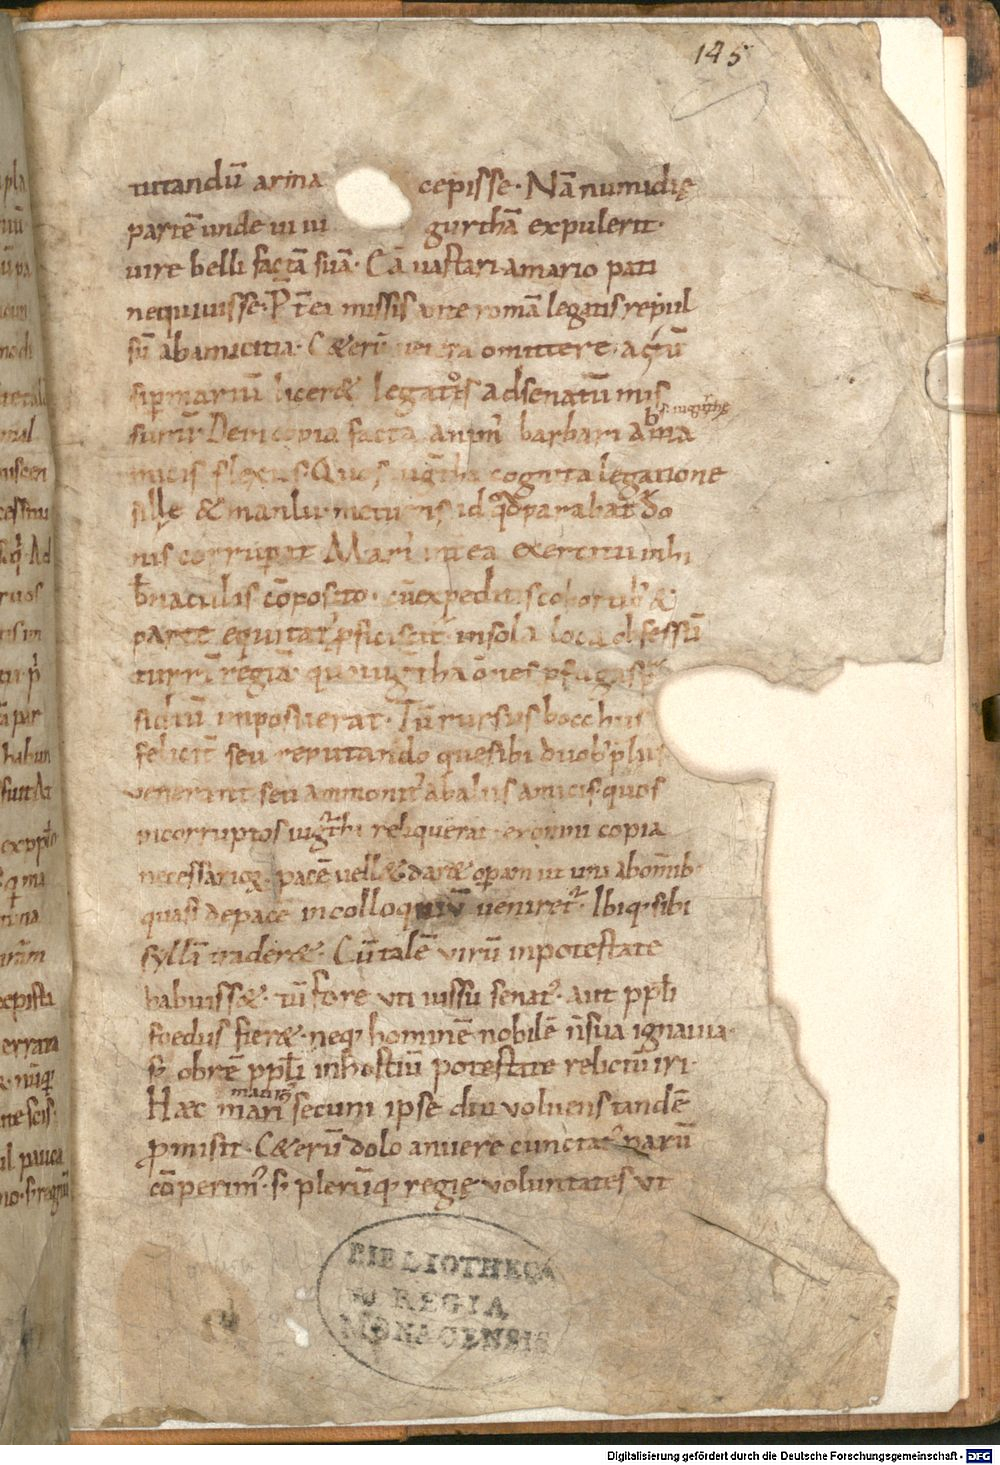 145
tutandū arma cepisse. Nā numidię
partē unde ui iu gurthā expulerit.
iure belli factā suā. Eā uastari amario pati
nequiuisse. P̄t̄ea missis ante romā legatis repul
sū ab amicitia. C&erū uet̄a omittere. ac tū
sip mariū licer& legatos adsenatū mis
surū. Dein copia facta animˀ barbari ab ami
s. iugurthę
micis flexus. Quos iugtha cognita legatione
sillę & manlii metuens id qd̄ parabat̄ do
nis corrupit. Mariˀ int̄ea exercitu in hi
b̄naculis cōposito. cū expeditis cohortibˀ &
parte equitatˀ pficiscitˀ in sola loca obsessū
turrī regiā. quo iugtha ōnes pfugas p̄
sidiū imposuerat. Tū rursus bocchus
felicit̄ seu reputando que sibi duobˀ p̄liis
uenerant seu ammonitˀ ab aliis amicis. quos
incorruptos iugthˀ reliquerat. ex omni copia
necessarioꝝ. pacē uell& dar& operam ut uti ab om̄ib.
quasi depace in colloquiū ueniretˀ. Ibiq. sibi
syllā trader&. Cū talē uirū inpotestate
habuiss&. tū fore uti iussu senatˀ. aut ppli
foedus fier&. neq. hominē nobilē n̄ sua ignauia.
sˀ ob rē ppli in hostiū potestate relictū iri.
maurus
Haec mari secum ipse diu voluens tandē
p̱misit. C&erū dolo an uere cunctatˀ parū
cōperimˀ. sˀ plerūq. regię voluntates ut
BIBLIOTHECA
REGIA
MONACENSIS
Digitalisierung gefördert durch die Deutsche Forschungsgemeinschaft - DFG